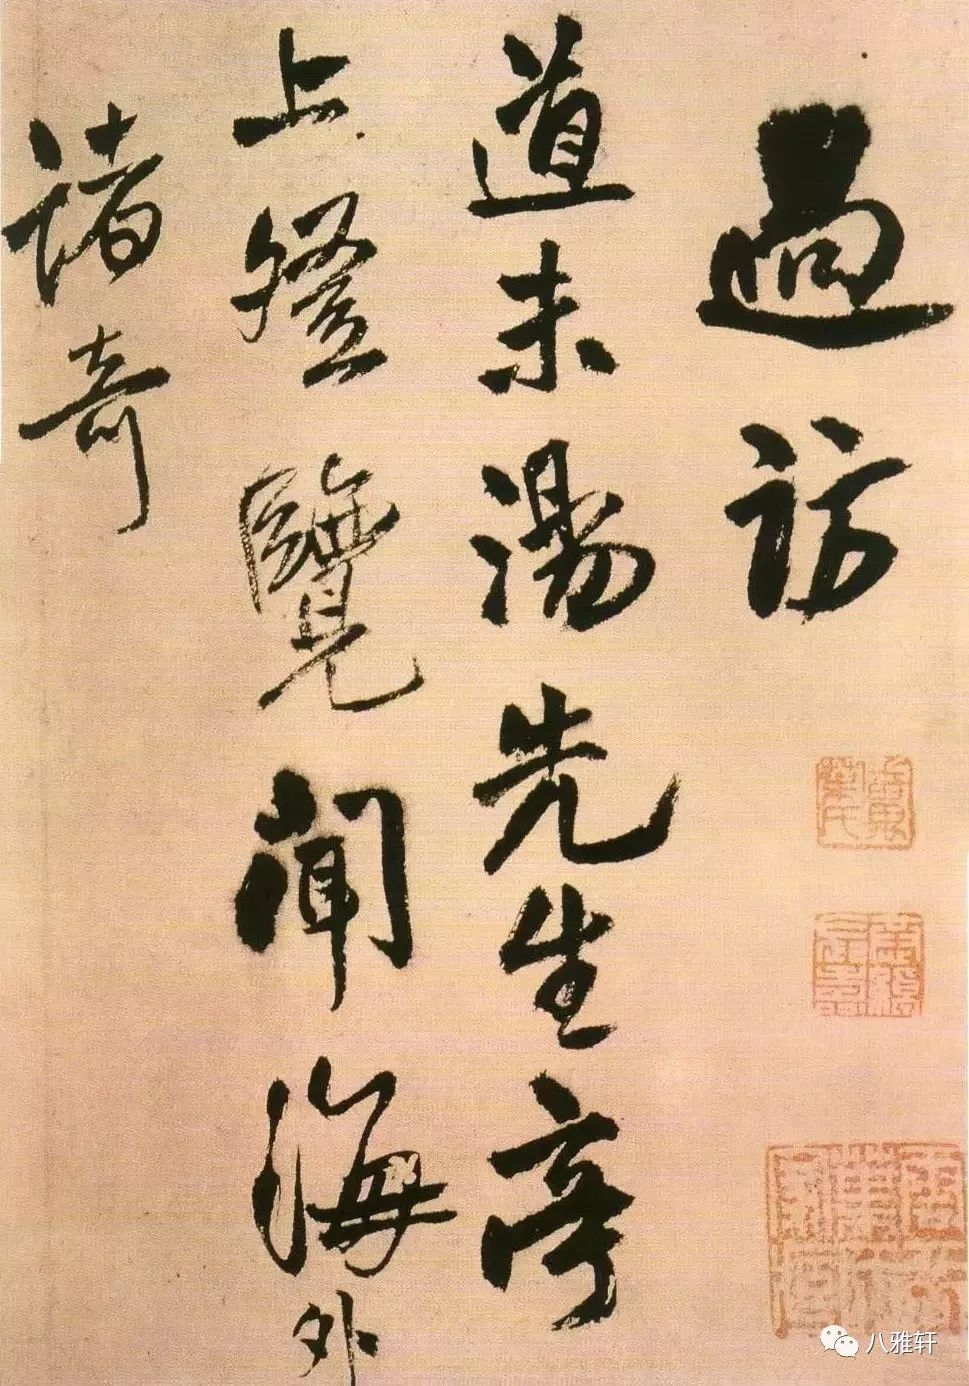 過訪
道未湯先生亭
上登覽聞海外
諸奇
八雅轩